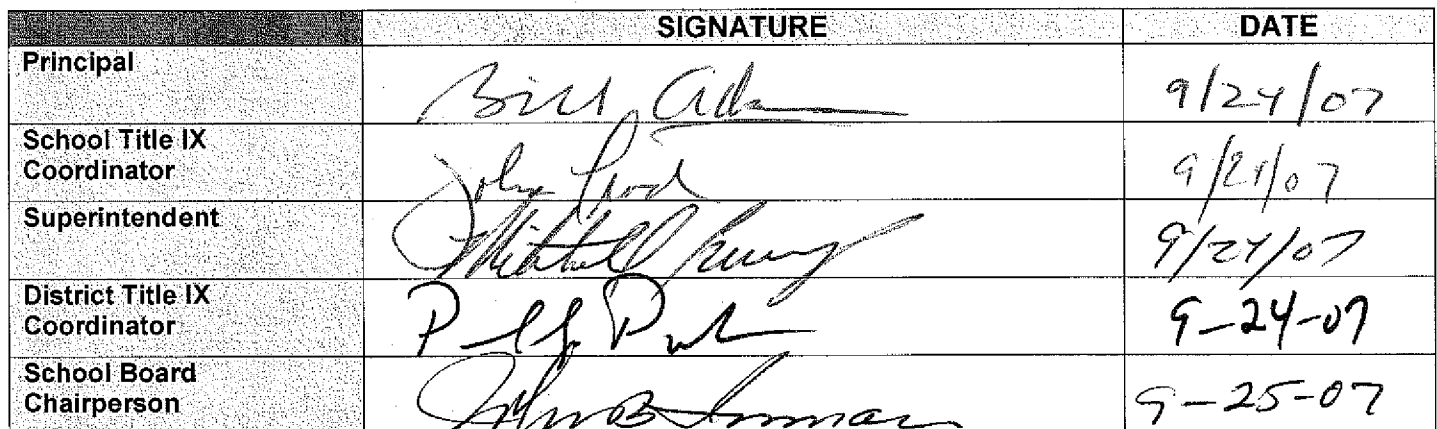 SIGNATURE DATE
Principal Bill 9/24/07
School Title IX
Coordinator John 9/24/07
Superintendent Mitchell 9/24/07
District Title IX
Coordinator 9-24-07
School Board
Chairperson John B 9-25-07